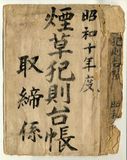 昭和十年度
煙草犯則台帳
取締係